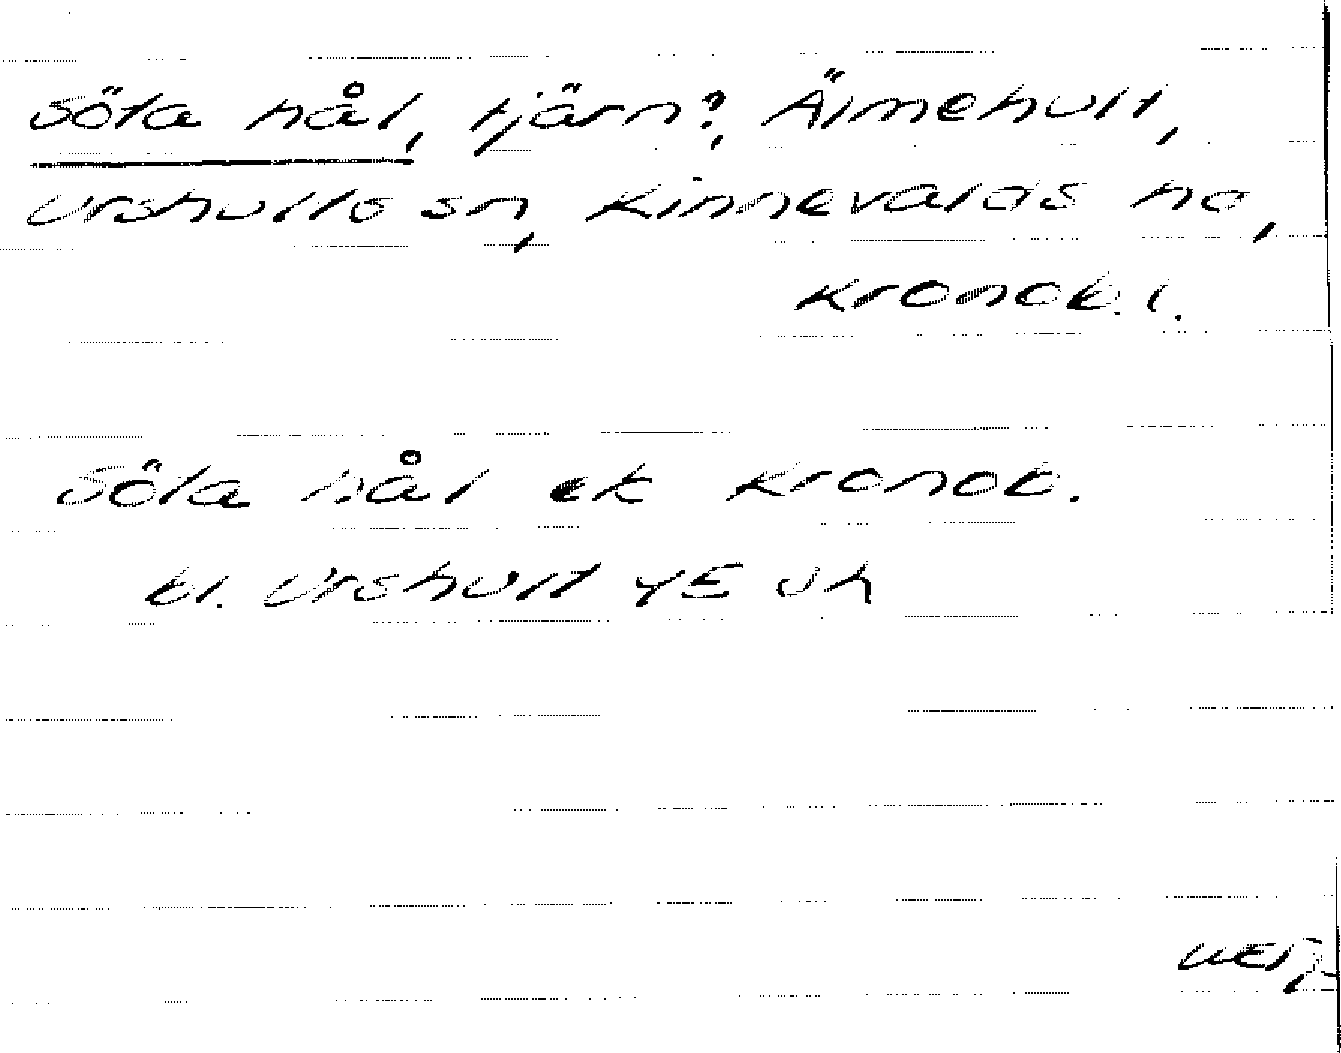 Söta hål, tjärn?, Älmehult,
Urshults sn, Kinnevalds hd,
Kronob. l.
Söta hål ek Kronob.
bl. Urshult 4E